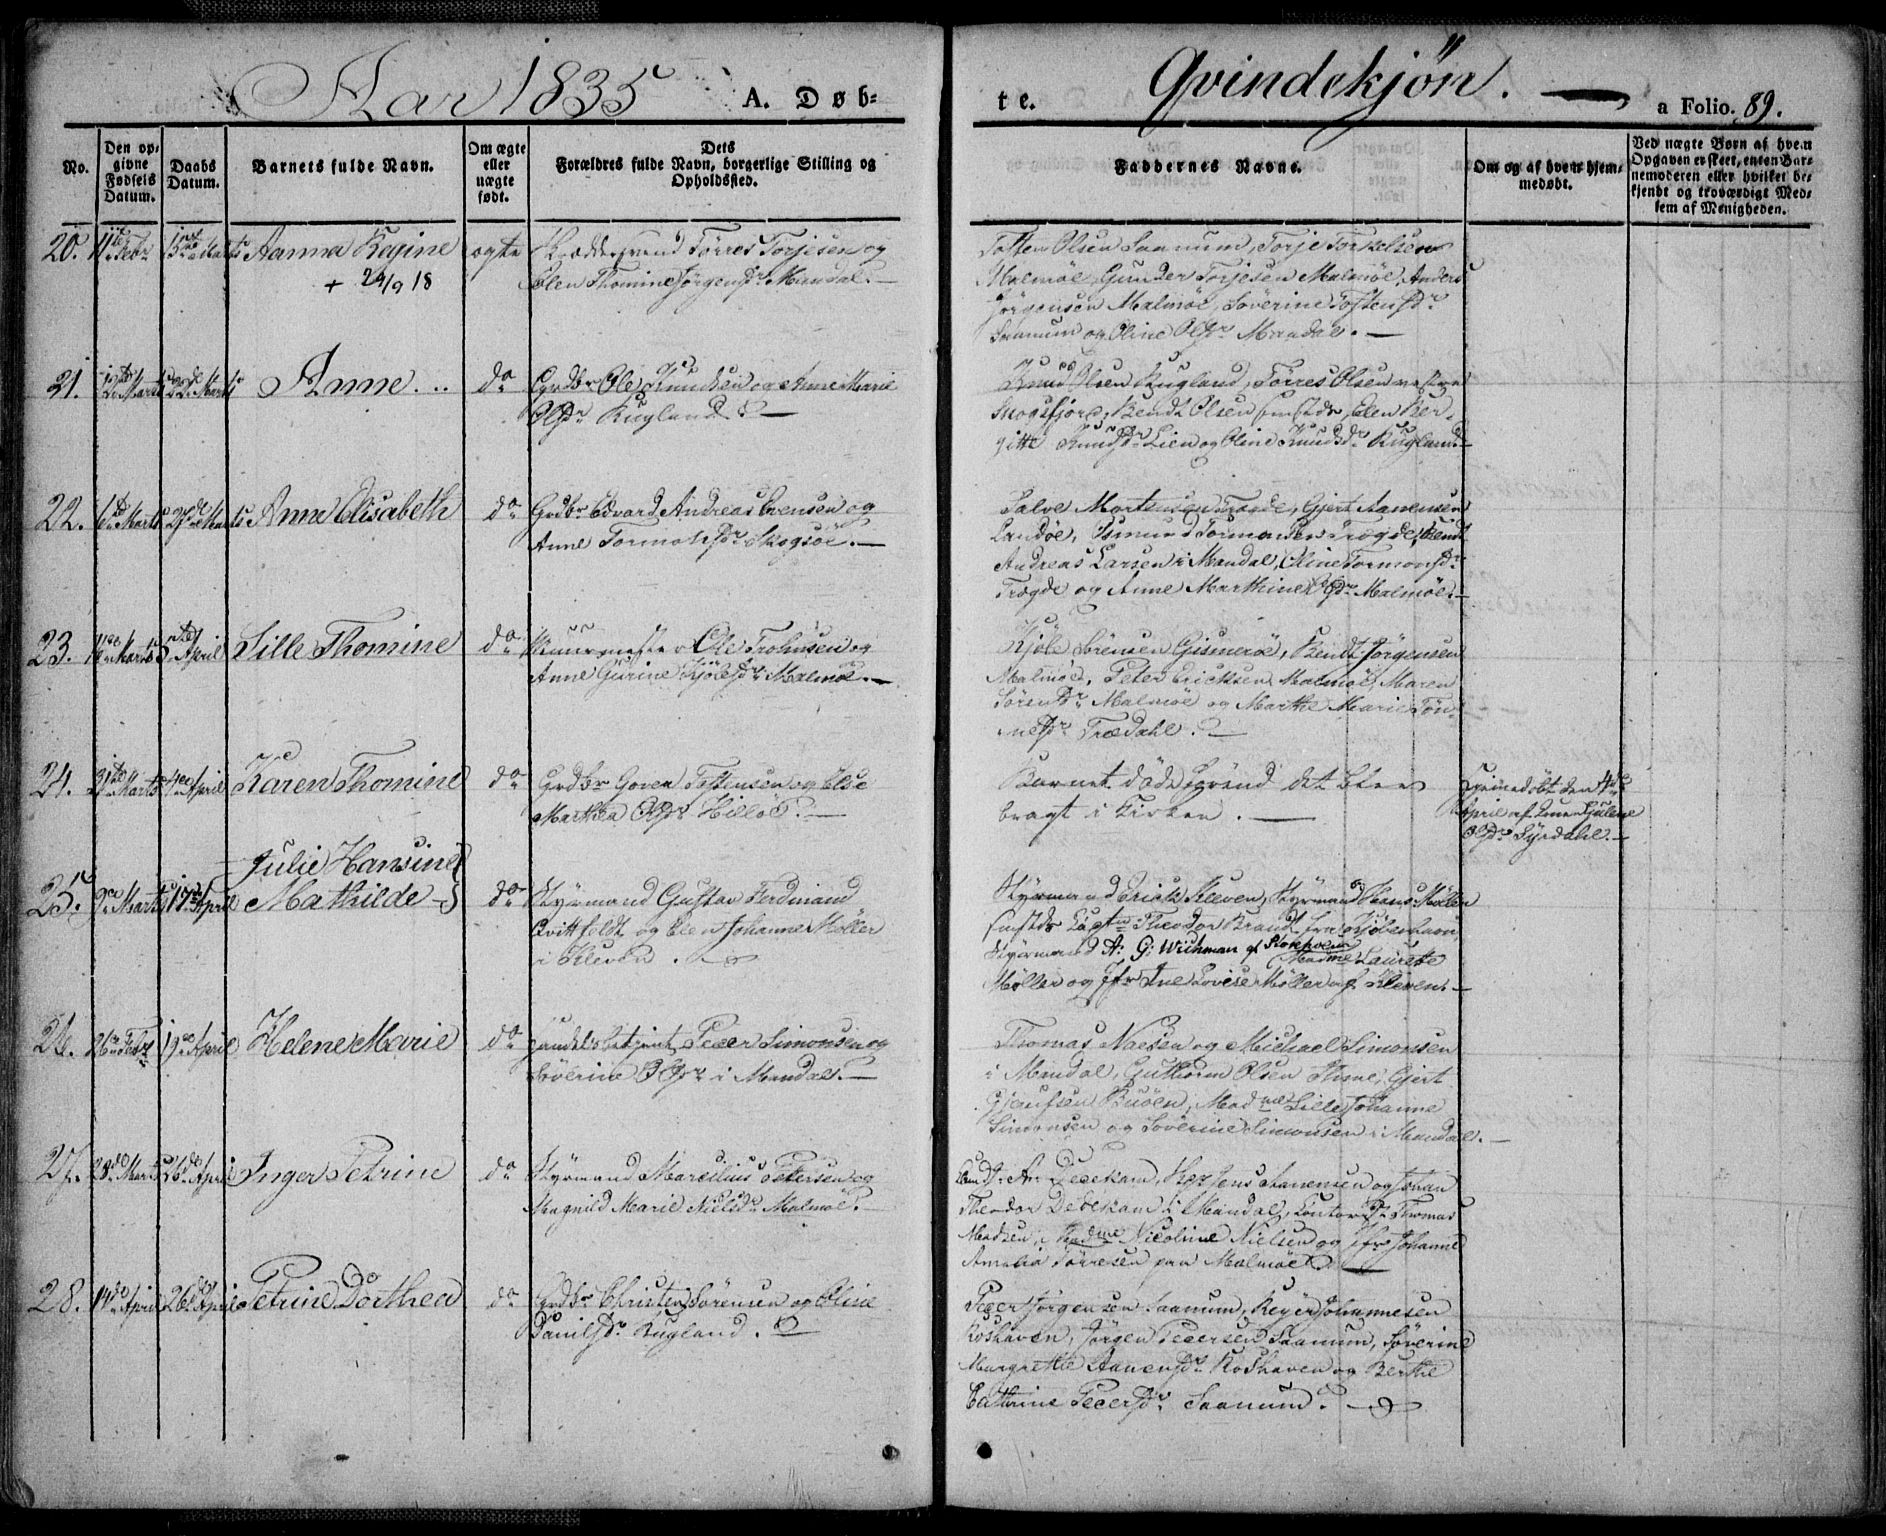 Aar 1835 A. Døb-
te. Qvindekjøn. — a Folio. 89.
No.
Den op-
givne
Fødsels
Datum.
Daabs
Datum.
Barnets fulde Navn.
Om ægte
eller
uægte
født.
Dets
Forældres fulde Navn, borgerlige Stilling og
Opholdssted.
Faddernes Navne.
Om og af hvem hjem-
medøbt.
Ved uægte Børn af hvem
Opgaven er skeet, enten Bar-
nemoderen eller hvilket be-
kjendt og troværdigt Med-
lem af Menigheden.
20. 11te Febr 15de Marts Aanna Regine ægte Skræddersvend Tørres Torjesen og
+ 24/9 18 Elen Thomine Jørgensdr Mandal. —
Tosten Olsen Saanum, Torje Torkelsen
Malmøe, Gunder Torjesen Malmøe, Anders
Jörgensen Malmöe, Soverine Tostensdr
Saanum og Oline Olsdr Mandal. —
21. 12te Marts 22de Marts Anne .. do Grdbr Ole Knudsen og Anne Marie
Olsdr Rugland. —
Knud Olsen Rugland, Törres Olsen
Skogsfjord, Bendt Olsen Elen Ber-
gitte Knudsdr Lien og Oline Knudsdr Rugland
22. 6te Marts 27de Marts Anna Elisabeth do Grdbr Edvard Andreas Evensen og
Anne Tormodsdr Skogsöe. —
Salve Mortensen Trogde, Gjert Aanensen
Landöe, Asmund Tormodsen Trogde, Bendt
Andreas Larsen i Mandal, Oline Tormodsdr
Trogde og Anne Marthine Olsdr Malmöe. —
23. 16de Marts 5te April Sille Thomine do Muurmester Ole Trohnsen og
Anne Gurine Kjölesdr Malmöe. —
Kjöle Sörensen Gismeröe, Bendt Jörgensen
Malmöe, Peter Ericksen Malmöe, Maren
Sörensdr Malmöe og Marthe Marie Tön-
nesdr Trædahl. —
24. 31te Marts April Karen Thomine do Grdbr Goven Tostensen og Else
Marthea Olsdr Hillöe. —
Barnet döde förend det blev
bragt i Kirken. —
Hjemedöbt den 4de
April af
Olsdr Syrdahl. —
25. 9de Marts 17de April Julie Hansine
Mathilde do Styrmand Gustav Ferdinand
Qvittfeldt og Elen Johanne Möller
i Kleven.
Styrmand Erick Kleven, Styrmand Hans Möller
Theodor Brandt fra Kjöbenhavn,
Styrmand A: G: Wichman af Stokholm Madme Laurette
Möller og Jfr Ane Lovise Möller af Kleven. —
26. 26de Febr 19de April Helene Marie do Handelsbetjent Peder Simonsen og
Severine Olsdr i Mandal. —
Thomas Naesen og Michael Simonsen
i Mandal, Guthorm Olsen Gjert
Buöen, Madme Sille Johanne
Simonsen og Soverine Simonsen i Mandal. —
27. 28de Marts 26de April Inger Petrine do Styrmand Marcelius Petersen og
Magnild Marie Nielsdr Malmöe. —
Dedekam, Aanensen og Johan
Theodor Dedekam i Mandal, Contorist Thomas
Madsen, Madme Nicoline Nielsen og Jfr Johanne
Amalia Törresen paa Malmöe. —
28. 14de April 26de April Petrine Dorthea do Grdbr Christen Sörensen og Oline
Danilsdr Rugland. —
Peder Jörgensen Saanum, Reyer Johannesen
Roshaven, Jörgen Pedersen Saanum, Söverine
Margrethe Aanensdr Roshaven og Berthe
Cathrine Pedersdr Saanum. —